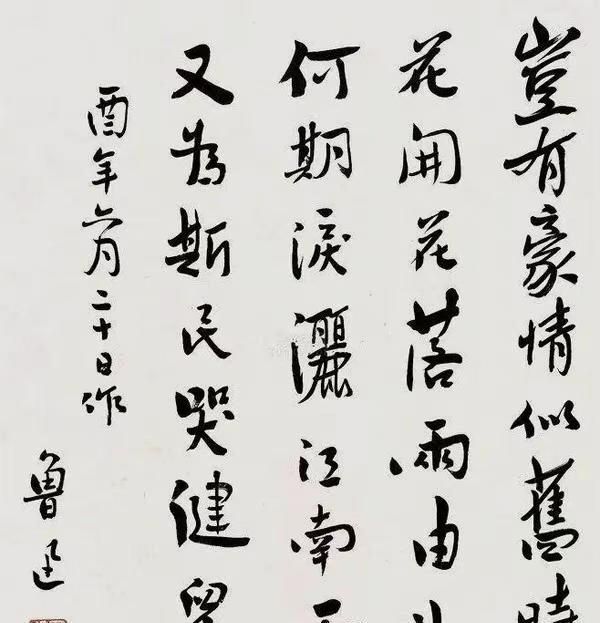 豈有豪情似舊時
花開花落兩由
何期淚灑江南
又為斯民哭健兒
酉年六月二十日作
魯迅